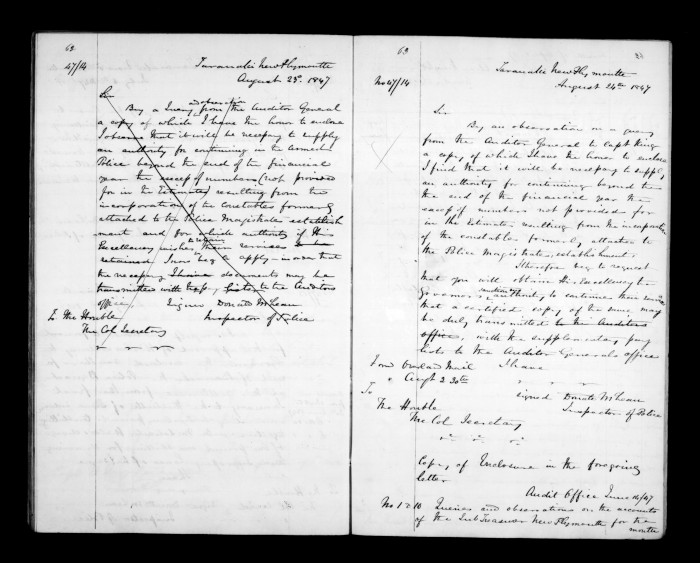 62
47/14
Taranaki New Plymouth
August 23rd 1847
Sir
By a Query observation from the Auditor General
a copy of which I have the honor to enclose
I observe that it will be necessary to supply
an authority for continuing in the Armed
Police beyond the end of the financial
year the excess of numbers (not provided
for in the Estimates) resulting from the
incorporation of the Constables formerly
attached to the Police Magistrates establish
ment and for which authority if His
Excellency wishes their services to be
retained I now beg to apply in order that
the necessary documents may be
transmitted with lists to the Auditors
office Signed Donald McLean
To The Honble Inspector of Police
The Col Secretary
63
No 47/14
Taranaki New Plymouth
August 24th 1847
Sir
By an observation on a query
from the Auditor General to Capt King
a copy of which I have the honor to enclose
I find that it will be necessary to supply
an authority for continuing beyond the
the end of the financial year the
excess of numbers not provided for
in the Estimates resulting from the incorporation
of the constables formerly attached to
the Police Magistrates establishment.
I therefore beg to request
that you will obtain His Excellency the
Governors sanction authority to continue their services
that a certified copy of the same may
be duly transmitted to the Auditors
office, with the supplementary pay
lists to the Auditor Generals office
I have
Overland Mail
Augt 30th
Signed Donald McLean
To Inspector of Police
The Honble
The Col Secretary
Copy of Enclosure in the foregoing
letter
Audit Office June 14/47
No 1 to 10 Queries and observations on the accounts
of the Sub Treasurer New Plymouth for the
month